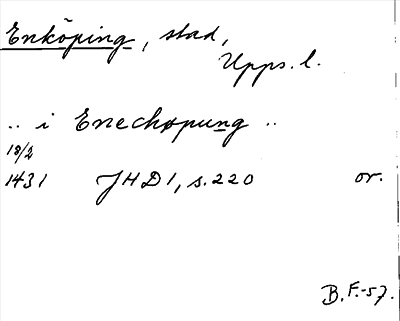 Enköping, stad,
Upps. l.
.. i Enechøpung ..
18/2
1431 JHD 1, s. 220 or.
B.F.-57.